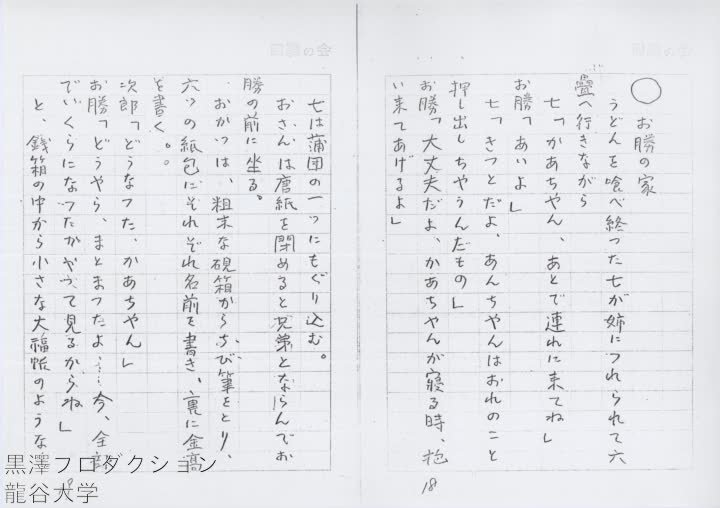 ○ お勝の家
うどんを喰べ終った七が姉につれられて六
畳へ行きながら
七「かあちゃん、あとで連れに来てね」
お勝「あいよ」
七「きつとだよ、あんちゃんはおれのこと
押し出しちゃうんだもの」
お勝「大丈夫だよ、かあちゃんが寝る時、抱
い来てあげるよ」
18
七は蒲団の一つにもぐり込む。
おさんは唐紙を閉めると兄弟とならんでお
勝の前に坐る。
おかつは、粗末な硯箱からちび筆をとり、
六つの紙包にそれぞれ名前を書き、裏に金高
を書く。
次郎「どうなつた、かあちゃん」
お勝「どうやら、まとまつたよ……今、全部
でいくらになつたかやつて見るからね」
と、銭箱の中から小さな大福帳のような
黒澤プロダクション
龍谷大学